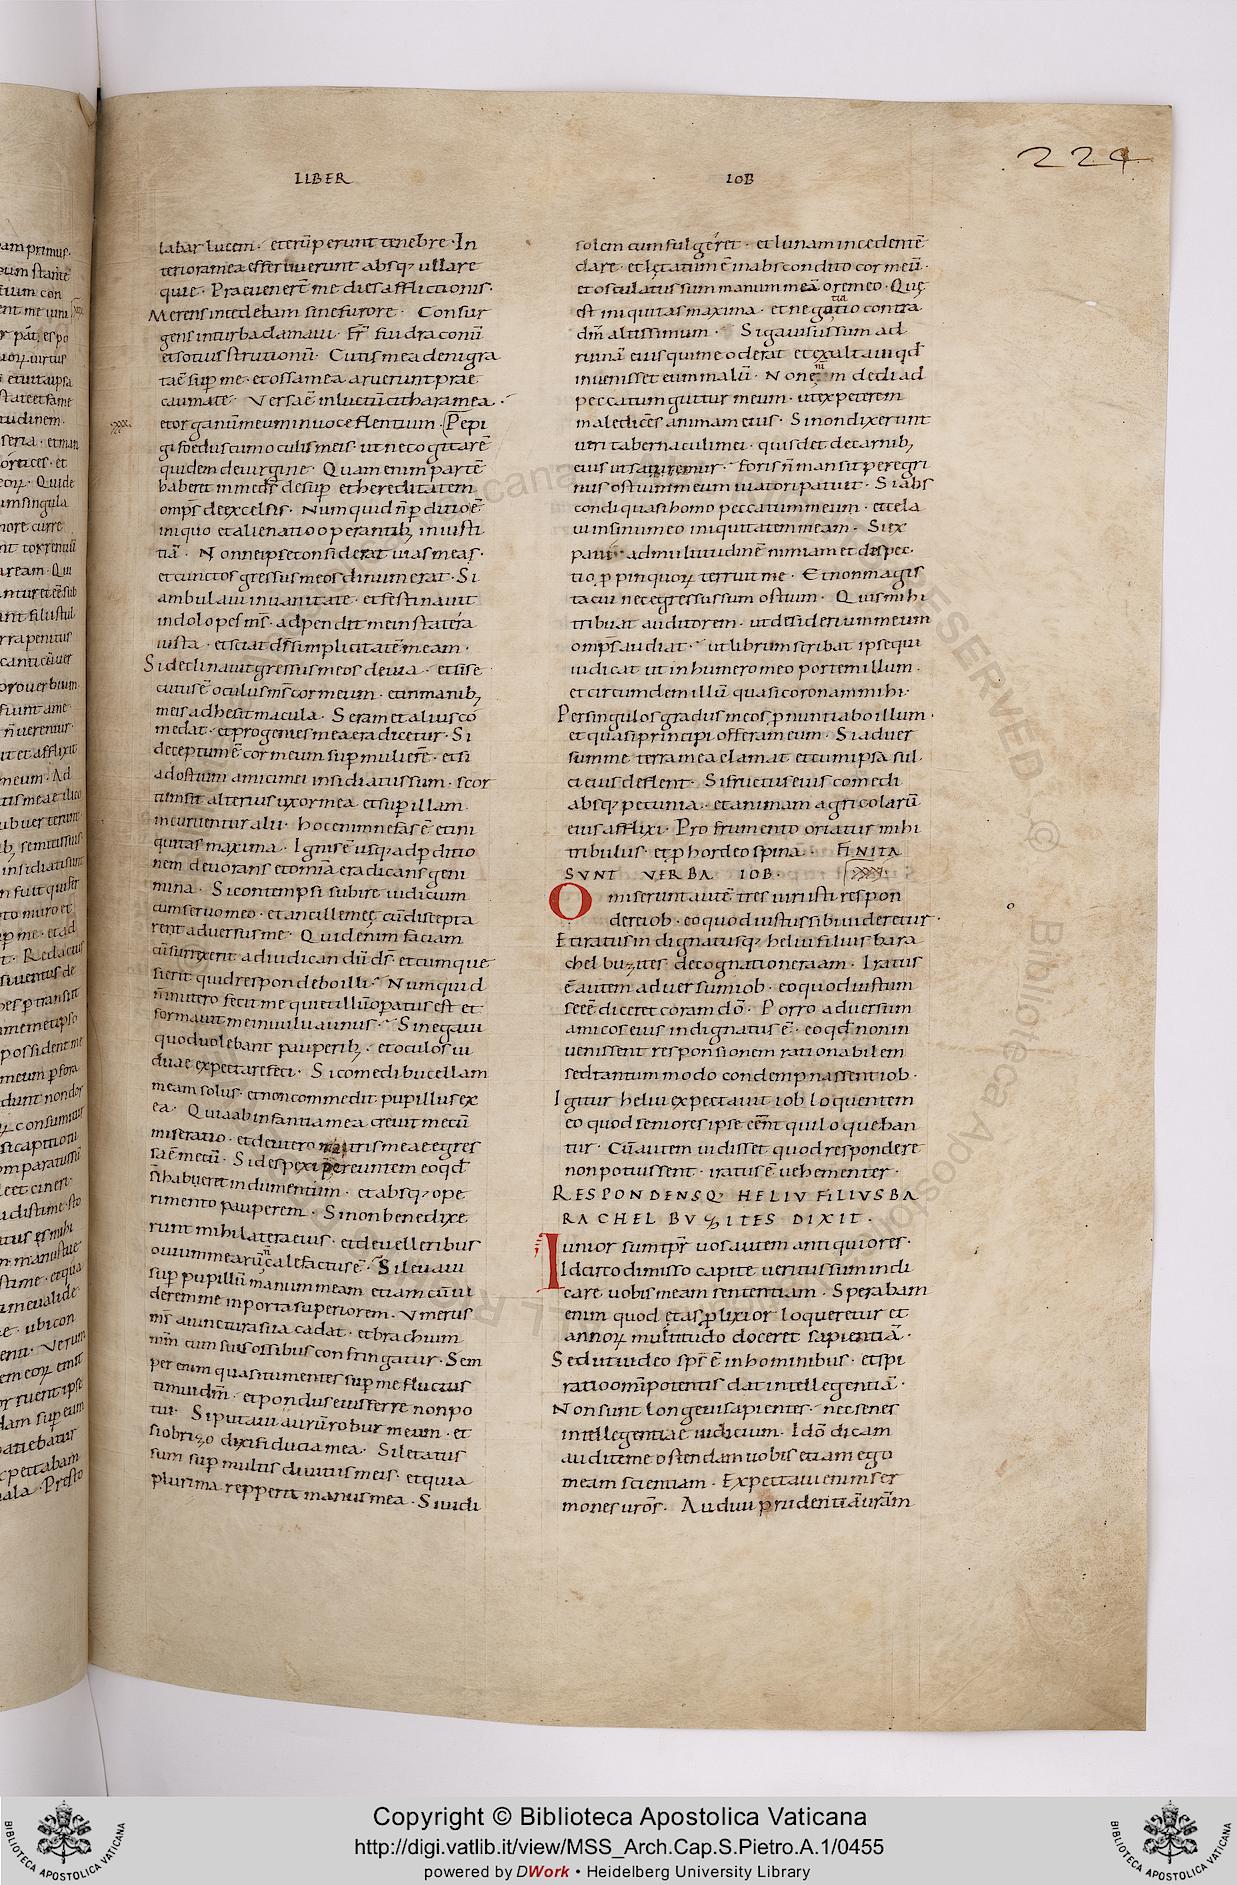 LIBER IOB
224
labar lucem · et erūperunt tenebre · In
teriora mea efferbuerunt absq; ulla re
quie · Praevenerūt me dies afflictionis ·
Merens incedebam sine furore · Consur
gens in turba clamavi · Fr̄ fui draconū
et sotius strutionū · Cutis mea denigra
ta ē sup me · et ossa mea aruerunt prae
caumate · Versa ē in luctū cithara mea ·
et organū meum in voce flentium · Pepi
gi foedus cum oculis meis · ut ne cogitarē
quidem de virgine · Quam enim partē
haberet in me ds̄ desup et hereditatem
omps̄ de excelsis · Numquid n̄ pditio ē
iniquo et alienatio operantib; iniusti
tiā · Nonne ipse considerat vias meas ·
et cunctos gressus meos dinumerat · Si
ambulavi in vanitate · et festinavit
in dolo pes ms̄ · adpendat me in statera
iusta · et sciat ds̄ simplicitatē meam ·
Si declinavit gressus meos de via · et si se
cutus ē oculus ms̄ cor meum · et in manib;
meis adhesit macula · Seram et alius co
medat · et progenies mea eradicetur · Si
deceptum ē cor meum sup mulierē · et si
ad ostium amici mei insidiatus sum · scor
tum sit alterius uxor mea et sup illam
incurventur alii · hoc enim nefas ē et ini
quitas maxima · Ignis ē usq; ad pditio
nem devorans et omīa eradicans geni
mina · Si contempsi subire iudicium
cum servo meo · et ancille meę cū discepta
rent adversus me · Quid enim faciam
cū surrexerit ad iudicandū ds̄ · et cum que
sierit quid respondebo illi · Numquid
n̄ in utero fecit me qui et illū opatus est et
formavit me in vulva unus · Si negavi
quod volebant pauperib; · et oculos vi
duae expectare feci · Si comedi bucellam
meam solus · et non commedit pupillus ex
ea · Quia ab infantia mea crevit mecū
miseratio · et de utero matris meae egres
sa ē mecū · Si despexi pereuntem eo qd
n̄ habueret indumentum · et absq; ope
rimento pauperem · Si non benedixe
runt mihi latera eius · et de velleribus
ovium mearū calefactus ē · Si levavi
sup pupillū manum meam etiam cū vi
derem me in porta superiorem · Vmerus
ms̄ a iunctura sua cadat · et brachium
mm̄ cum suis ossibus confringatur · Sem
per enim quasi tumentes sup me fluctus
timui dm̄ · et pondus eius ferre non po
tui · Si putavi aurū robur meum · et
si obrizo dixi fiducia mea · Si letatus
sum sup multis divitiis meis · et quia
plurima repperit manus mea · Si vidi
solem cum fulgeret · et lunam incedentē
clare · et lętatum ē in abscondito cor meū ·
et osculatus sum manum meā ore meo · Quę
est iniquitas maxima · et negatio contra
dm̄ altissimum · Si gavisus sum ad
ruinā eius qui me oderat et exultavi qd
invenisset eum malū · Non enim dedi ad
peccatum guttur meum · ut expeterem
maledicēs animam eius · Si non dixerunt
viri tabernaculi mei · quis det de carnib;
eius ut saturemur · Foris n̄ mansit peregri
nus ostium meum viatori patuit · Si abs
condi quasi homo peccatum meum · et cela
vi in sinu meo iniquitatem meam · Si ex
pavi ad multitudinē nimiam et despec
tio ppinquorum terruit me · Et non magis
tacui nec egressus sum ostium · Quis mihi
tribuat auditorem · ut desiderium meum
omps̄ audiat · ut librum scribat ipse qui
iudicat ut in humero meo portem illum ·
et circumdem illū quasi coronam mihi ·
Per singulos gradus meos pnuntiabo illum ·
et quasi principi offeram eum · Si adver
sum me terra mea clamat et cum ipsa sul
ci eius deflent · Si fructus eius comedi
absq; pecunia · et animam agricolarū
eius afflixi · Pro frumento oriatur mihi
tribulus · et p hordeo spina · FINITA
SVNT VERBA IOB ·
Omiserunt autē tres viri isti respon
dere iob · eo quod iustus sibi videretur ·
Et iratus indignatusq; heliu filius bara
chel buzites · de cognatione raam · Iratus
ē autem adversum iob · eo quod iustum
se eē diceret coram dō · Porro adversum
amicos eius indignatus ē · eo qd non in
venissent responsionem rationabilem
sed tantum modo condempnassent iob ·
Igitur heliu expectavit iob loquentem
eo quod seniores ipse eēnt qui loqueban
tur · Cū autem vidisset quod respondere
non potuissent · iratus ē vehementer ·
RESPONDENSQ; HELIV FILIVS BA
RACHEL BVZITES DIXIT ·
Iunior sum tpr̄ vos autem antiquiores ·
Idcirco dimisso capite veritus sum indi
care vobis meam sententiam · Sperabam
enim quod ętas plixior loqueretur et
annorum multitudo doceret sapientiā ·
Sed ut video sps̄ ē in hominibus · et spi
ratio omipotentis dat intellegentiā ·
Non sunt longevi sapientes · nec senes
intellegentiae iudicium · Ideo dicam
audite me ostendam vobis etiam ego
meam scientiam · Expectavi enim ser
mones vros̄ · Audivi prudentiā vrām
Copyright © Biblioteca Apostolica Vaticana
http://digi.vatlib.it/view/MSS_Arch.Cap.S.Pietro.A.1/0455
powered by DWork • Heidelberg University Library